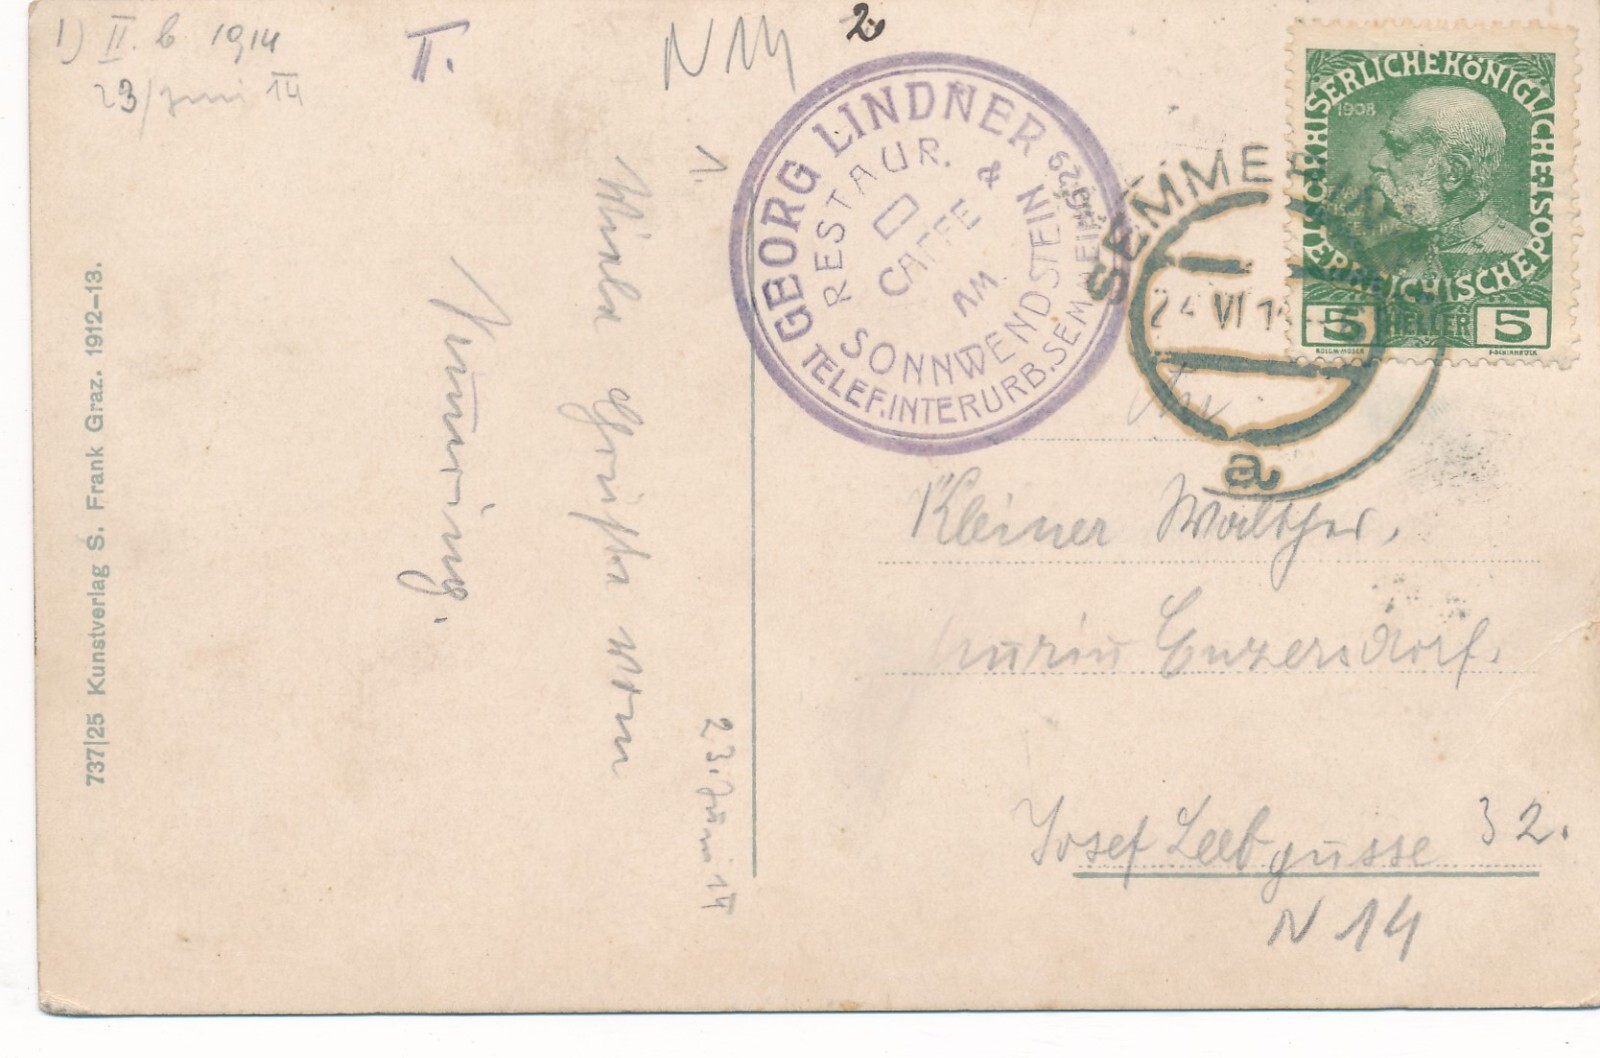 1) II. b 1914
23/Juni 14
I.
N 14
2.
1.
GEORG LINDNER
RESTAUR. &
CAFFE
AM
SONNWENDSTEIN
TELEF. INTERURB. SEMMERING 29
SEMMERING
24 VI 14
a
KAISERLICHE KÖNIGLICHE
ÖSTERREICHISCHE POST
1908
5 HELLER 5
Viele Grüße vom
Semmering.
23. Juni 14
Kleiner Walther.
Enzersdorf.
Josef Leebgasse 32.
N 14
737|25 Kunstverlag S. Frank Graz. 1912-13.